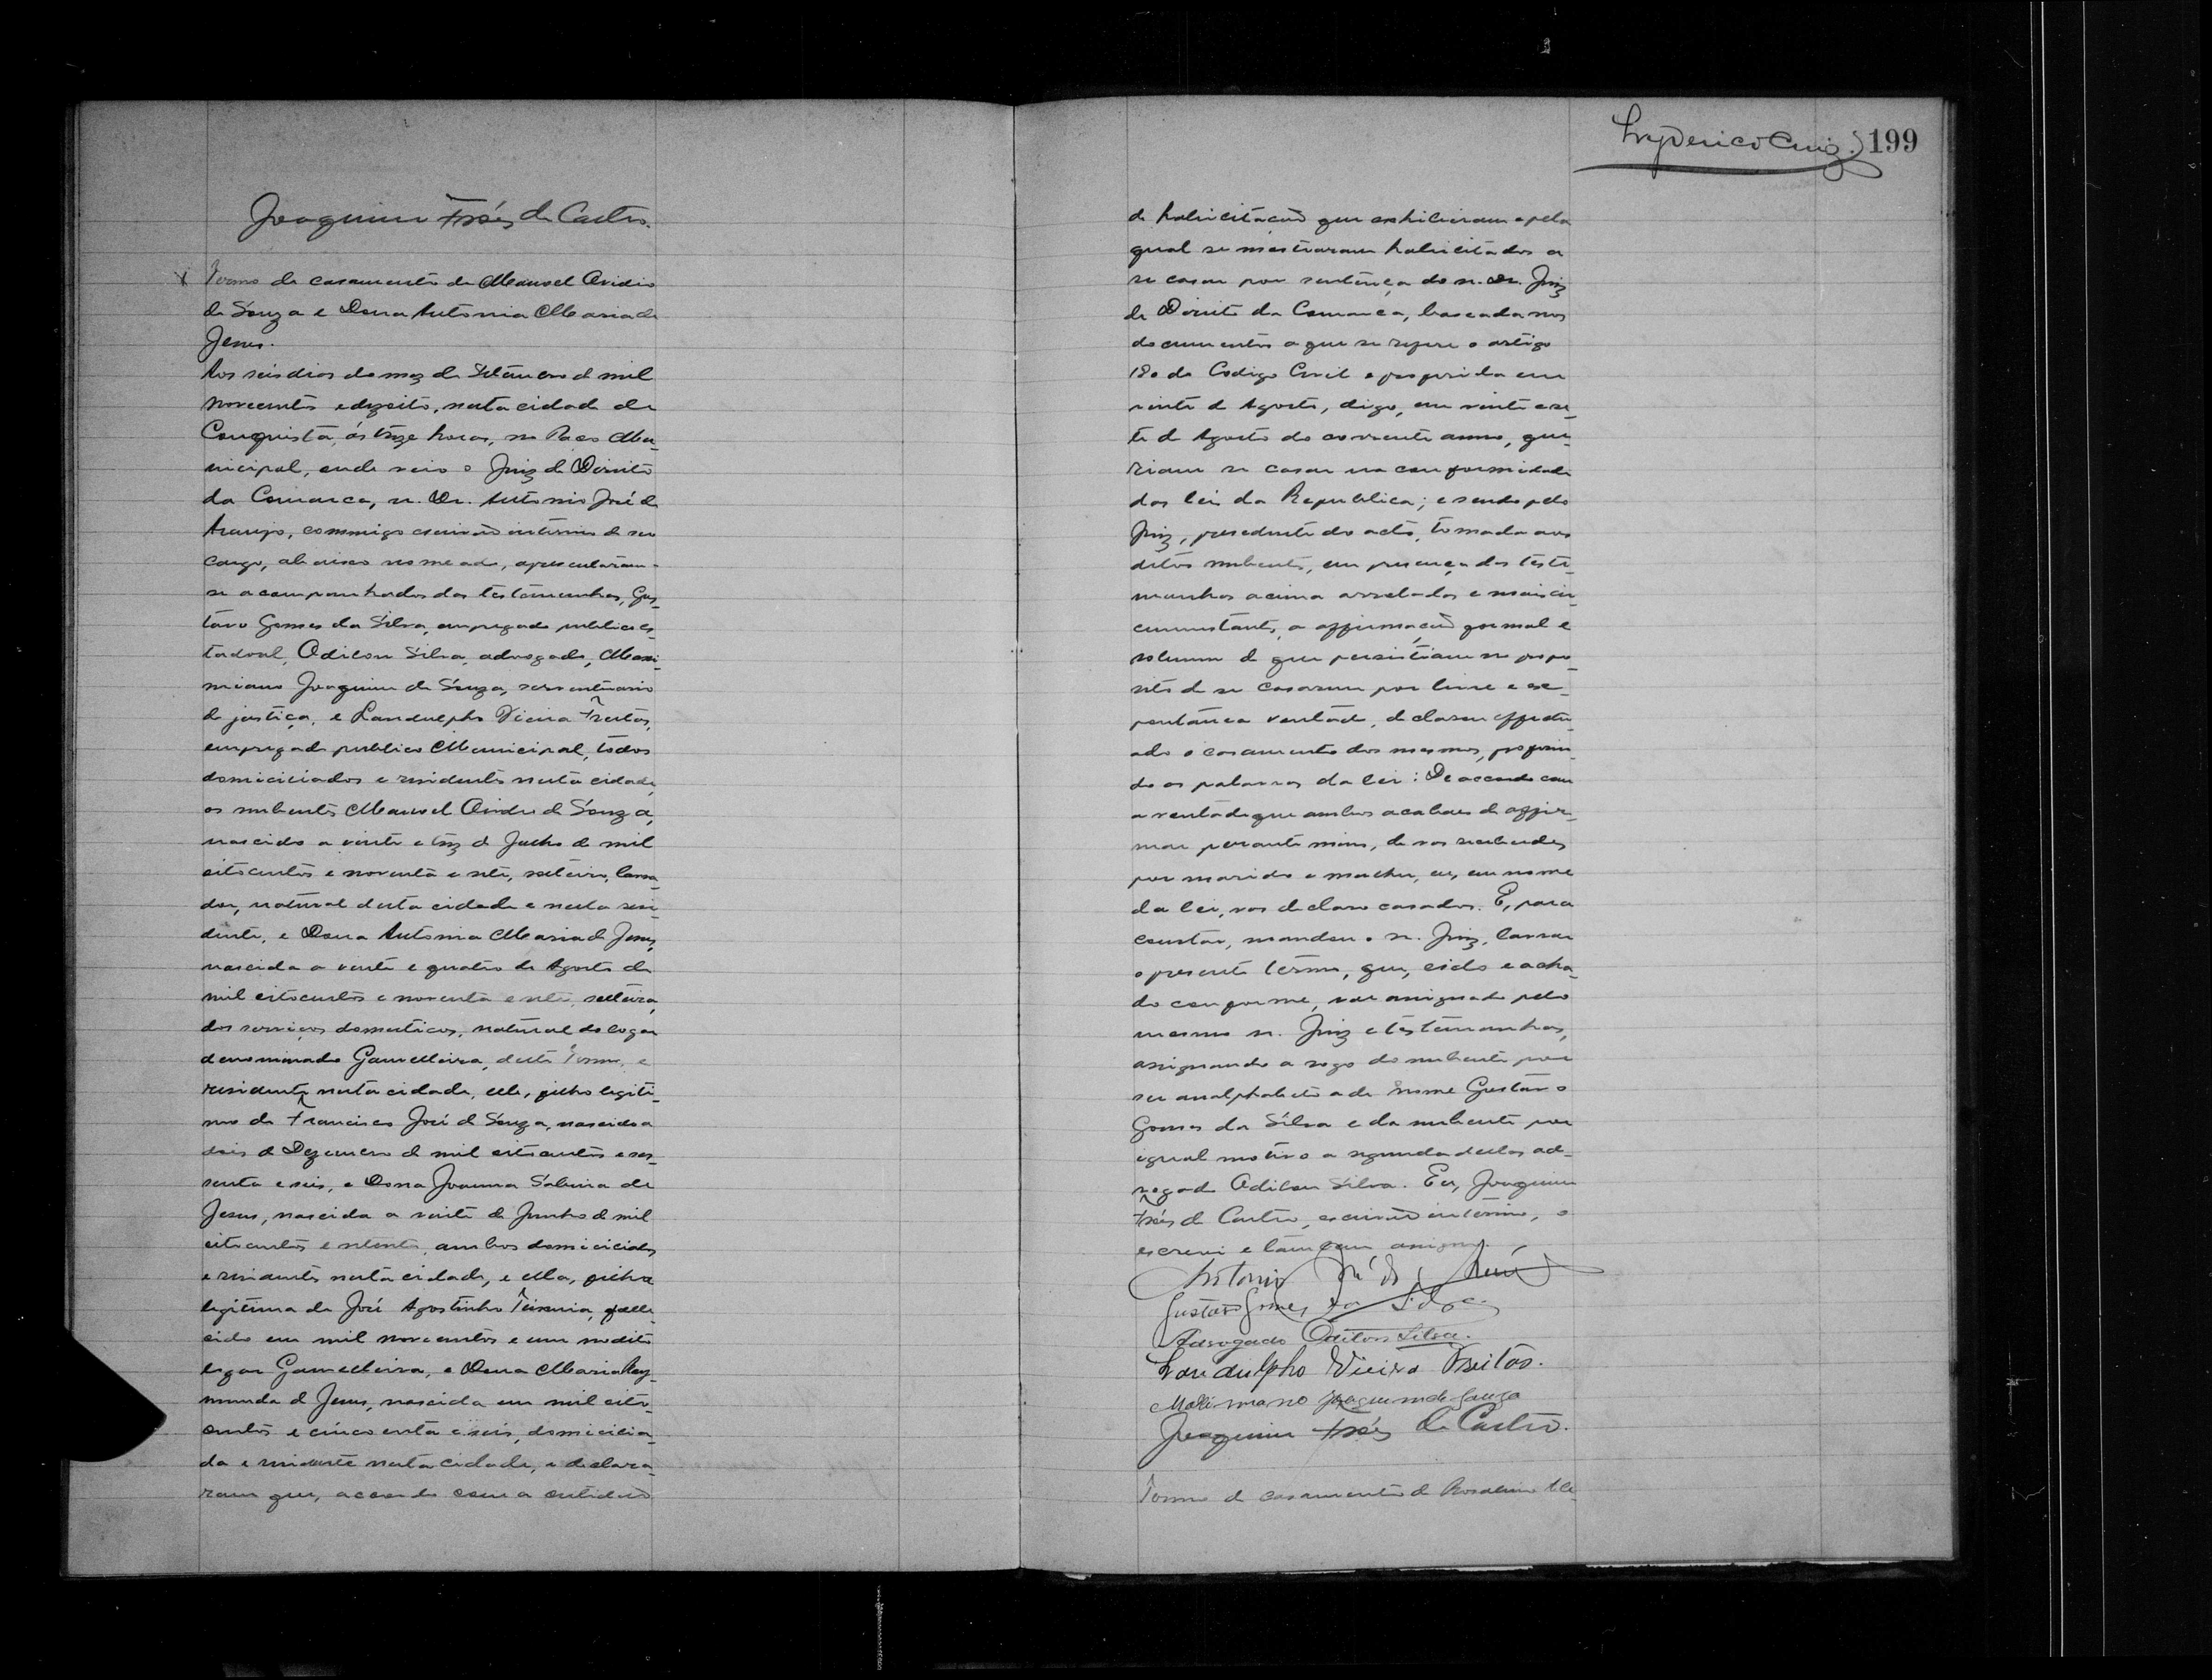 Joaquim Fróes de Castro.
Termo de casamento de Manoel Ovidio
de Souza e Dona Antonia Maria de
Jesus.
Aos seis dias do mez de Setembro de mil
novecentos e dezoito, nesta cidade de
Conquista, ás treze horas, no Paço Mu-
nicipal, onde veio o Juiz de Direito
da Comarca, sr. Dr. Antonio José de
Araujo, commigo escrivão interino de seu
cargo, abaixo nomeado, apresentaram-
se acompanhados das testemunhas, Gus-
tavo Gomes da Silva, empregado publico es-
tadoal, Odilon Silva, advogado, Maxi-
miano Joaquim de Souza, serventuario
de justiça, e Landulpho Vieira Freitas,
empregado publico Municipal, todos
domiciliados e residentes nesta cidade,
os nubentes Manoel Ovidio de Souza,
nascido a vinte e trez de Julho de mil
oitocentos e noventa e sete, solteiro, lavra-
dor, natural desta cidade e nesta resi-
dente, e Dona Antonia Maria de Jesus,
nascida a vinte e quatro de Agosto de
mil oitocentos e noventa e sete, solteira,
dos serviços domesticos, natural do logar
denominado Gamelleira, deste Termo, e
residente nesta cidade, elle, filho legiti-
mo de Francisco José de Souza, nascido a
dois de Dezembro de mil oitocentos e ses-
senta e seis, e Dona Joanna Sabina de
Jesus, nascida a vinte de Junho de mil
oitocentos e setenta, ambos domiciliados
e residentes nesta cidade, e ella, filha
legitima de José Agostinho Teixeira, falle-
cido em mil novecentos e um no dito
logar Gamelleira, e Dona Maria Ray-
munda de Jesus, nascida em mil oito-
centos e cincoenta e seis, domicilia-
da e residente nesta cidade, e declara-
ram que, accordo com a certidão
199
de habilitação que exhibiram e pela
qual se mostraram habilitados a
se casar por sentença do sr. Dr. Juiz
de Direito da Comarca, baseada nos
documentos a que se refere o artigo
180 do Codigo Civil e proferida em
vinte de Agosto, digo, em vinte e se-
te de Agosto do corrente anno, que-
riam se casar na conformidade
das leis da Republica; e sendo pelo
Juiz, presedente do acto, tomada aos
ditos nubentes, em presença das teste-
munhas acima arroladas e mais cir-
cumstantes, a affirmação formal e
solemne de que persistiam no propo-
sito de se casarem por livre e es-
pontanea vontade, declarou effectu-
ado o casamento dos mesmos, proferin-
do as palavras da lei: De accordo com
a vontade que ambos acabaes de affir-
mar perante mim, de vos receberdes
por marido e mulher, eu, em nome
da lei, vos declaro casados. E, para
constar, mandou o sr. Juiz, lavrar
o presente termo, que, lido e acha-
do conforme, vae assignado pelo
mesmo sr. Juiz e testemunhas,
assignando a rogo do nubente por
ser analphabeto a de nome Gustavo
Gomes da Silva e da nubente por
igual motivo a segunda dellas ad-
vogado Odilon Silva. Eu, Joaquim
Fróes de Castro, escrivão interino, o
escrevi e tambem assigno.
Antonio José de
Gustavo Gomes da Silva
Advogado Odilon Silva.
Landulpho Vieira Freitas.
Maximiano Joaquim de Souza
Joaquim Fróes de Castro.
Termo de casamento de Rosalino